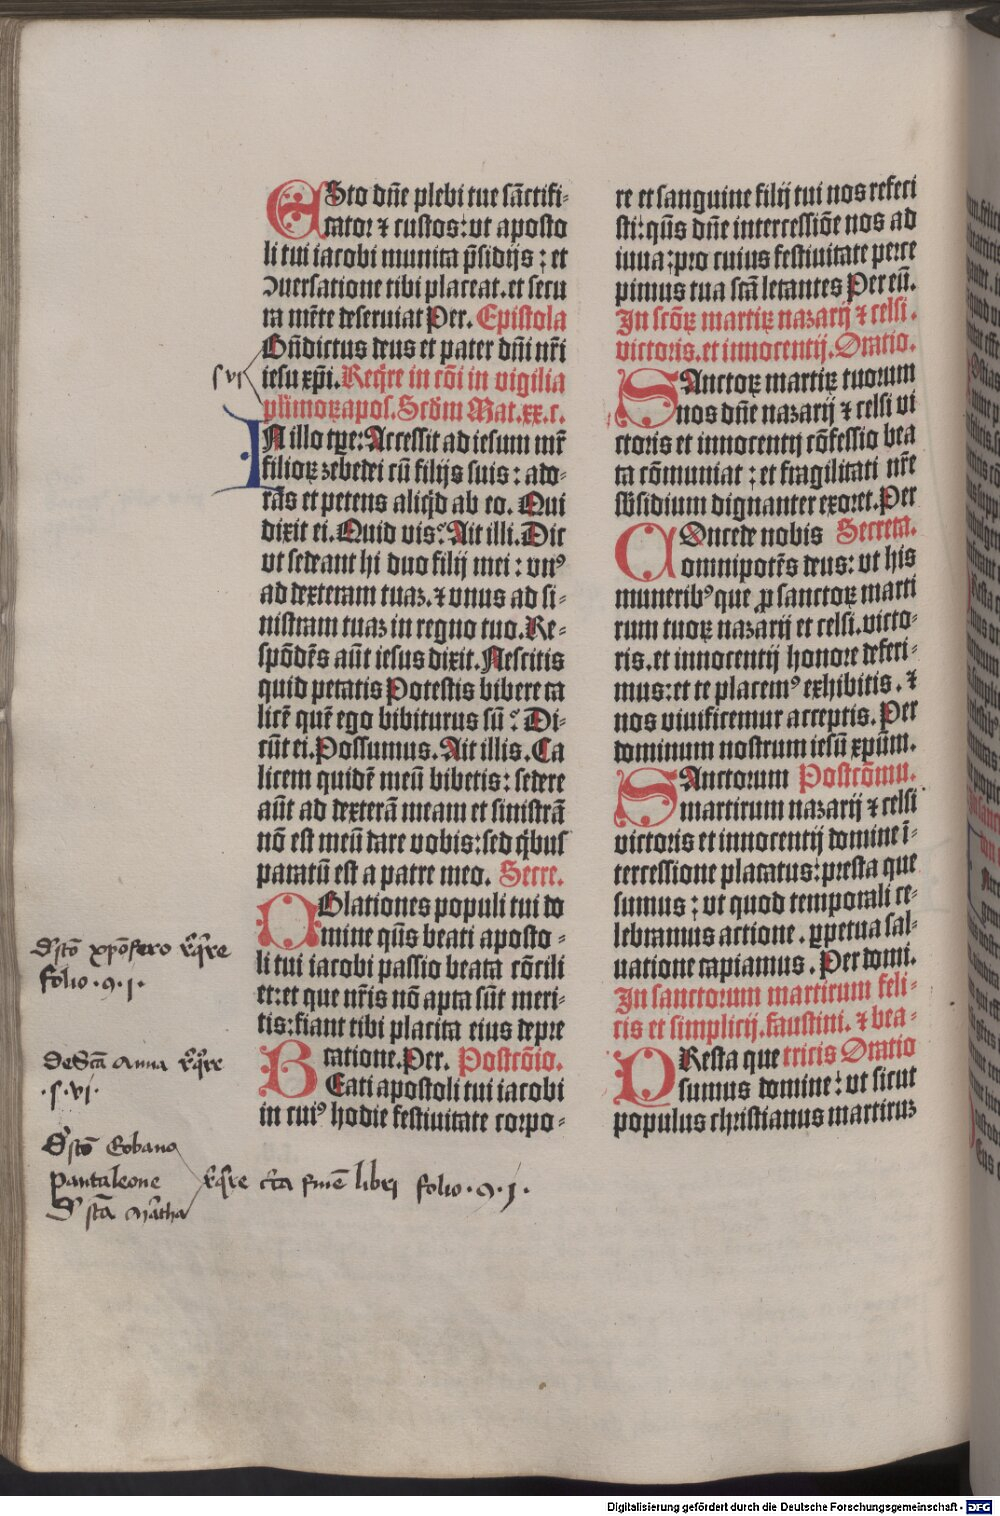 ESto dn̄e plebi tue sc̄tifi⸗
cator ⁊ custos: vt aposto
li tui iacobi munita p̄sidijs: et
ↄuersatione tibi placeat. et secu
ra mēte deseruiat Per. Epistola
Bn̄dictus deus et pater dn̄i nr̄i
iesu xp̄i. Req̄re in cōi in vigilia
plimoꝝ apos. Scd̄m Mat. xx. c.
IN illo tp̄e: Accessit ad iesum mr̄
filioꝝ zebedei cū filijs suis: ado⸗
rās et petens aliq̇d ab eo. Qui
dixit ei. Quid vis? Ait illi. Dic
vt sedeant hi duo filij mei: vnꝰ
ad dexteram tuaꝫ. ⁊ vnus ad si⸗
nistram tuaꝫ in regno tuo. Re⸗
spōdēs aūt iesus dixit. Nescitis
quid petatis Potestis bibere ca
licē quē ego bibiturus sū? Di⸗
cūt ei. Possumus. Ait illis. Ca
licem quidē meū bibetis: sedere
aūt ad dexterā meam et sinistrā
nō est meū dare vobis: sed q̇bus
paratū est a patre meo. Secre.
OBlationes populi tui do
mine qūs beati aposto⸗
li tui iacobi passio beata cōcili
et: et que nr̄is nō apta sūt meri⸗
tis: fiant tibi placita eius depre
catione. Per. Postcōio.
BEati apostoli tui iacobi
in cuiꝰ hodie festiuitate corpo⸗
re et sanguine filij tui nos refeci
sti: qūs dn̄e intercessiōe nos ad
iuua: pro cuius festiuitate perce
pimus tua scā letantes Per eū.
In scōꝝ martiꝝ nazarij ⁊ celsi.
victoris. et innocentij. Oratio.
SAnctoꝝ martiꝝ tuorum
nos dn̄e nazarij ⁊ celsi vi
ctoris et innocentij cōfessio bea
ta cōmuniat: et fragilitati nr̄e
sb̄sidium dignanter exoret. Per
COncede nobis Secreta.
omnipotēs deus: vt his
muneribꝰ que ꝓ sanctoꝝ marti
rum tuoꝝ nazarij et celsi. victo⸗
ris. et innocentij honore deferi⸗
mus: et te placemꝰ exhibitis. ⁊
nos viuificemur acceptis. Per
dominum nostrum iesū xp̄um.
SAnctorum Postcōmu.
martirum nazarij ⁊ celsi
victoris et innocentij domine ī⸗
tercessione placatus: presta que
sumus: vt quod temporali ce⸗
lebramus actione. ꝑpetua sal⸗
uatione capiamus. Per domi.
In sanctorum martirum feli⸗
cis et simplicij. faustini. ⁊ bea⸗
PResta que tricis Oratio
sumus domine: vt sicut
populus christianus martiruꝫ
svi
D' sctō xpōfero rq̄re
folio .9.j.
De Scā Anna rq̄re
.s.vj.
D' sctō Eobano
pantaleone
D' sctā Martha
rq̄re circa finē libri folio .9.j.
Digitalisierung gefördert durch die Deutsche Forschungsgemeinschaft - DFG